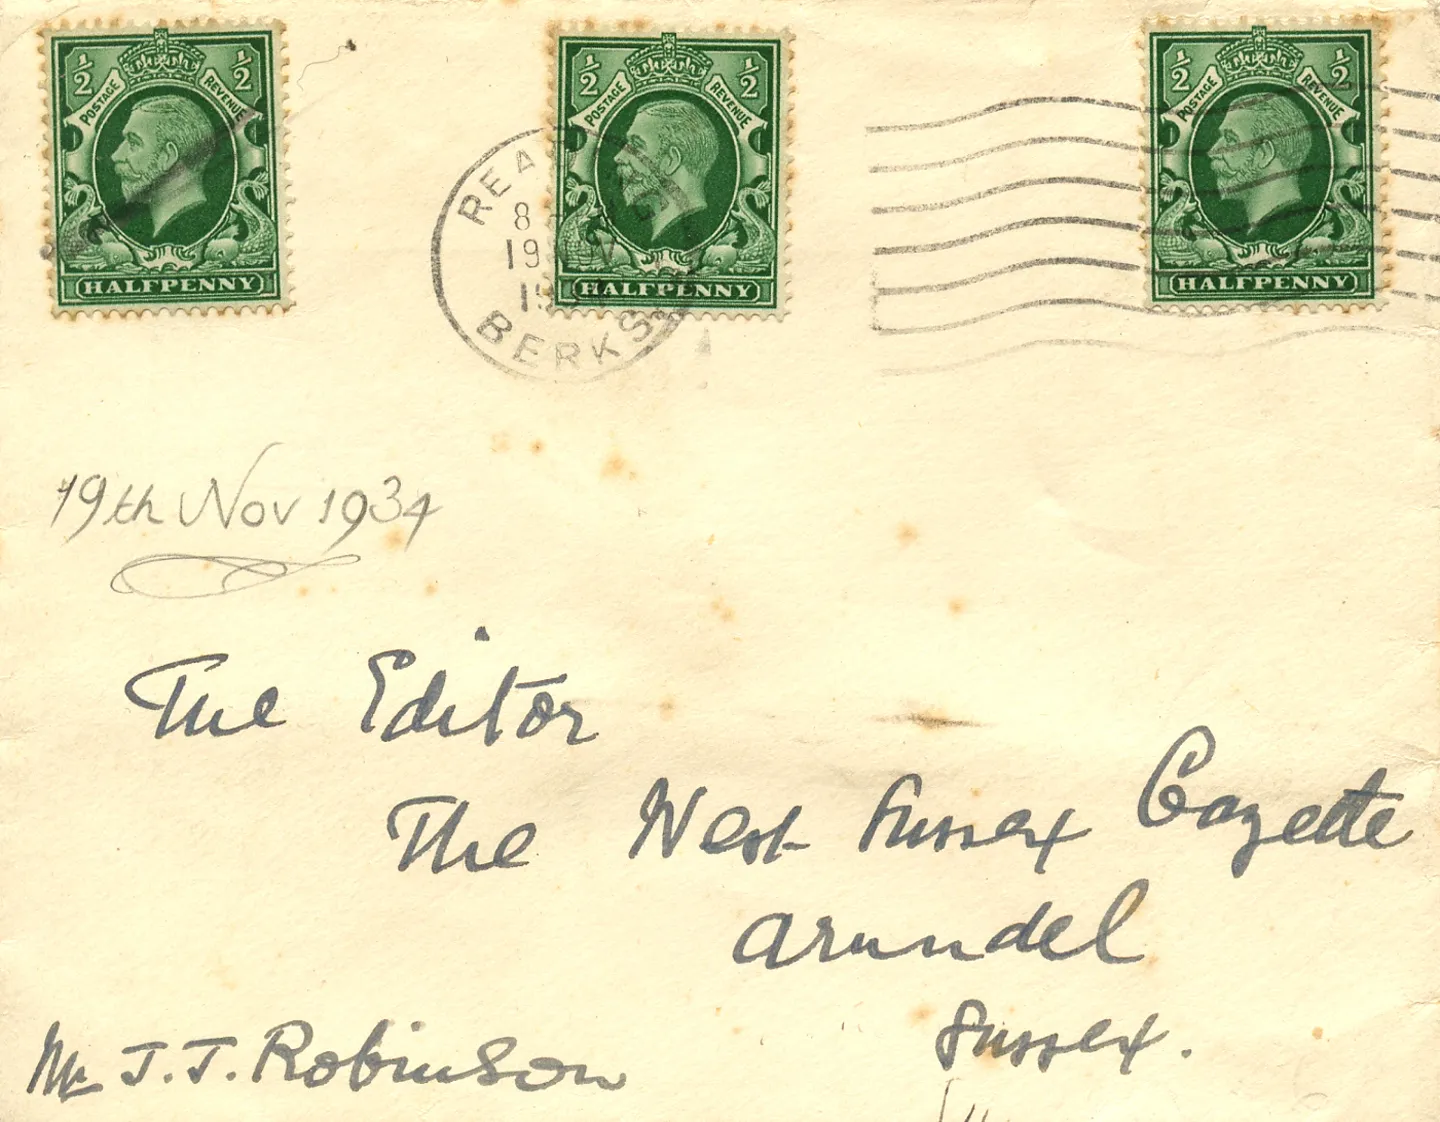 ½ ½
POSTAGE REVENUE
HALFPENNY
½ ½
POSTAGE REVENUE
HALFPENNY
½ ½
POSTAGE REVENUE
HALFPENNY
BERKS
19th Nov 1934
The Editor
The West Sussex Gazette
Arundel
Sussex.
Mr J. J. Robinson